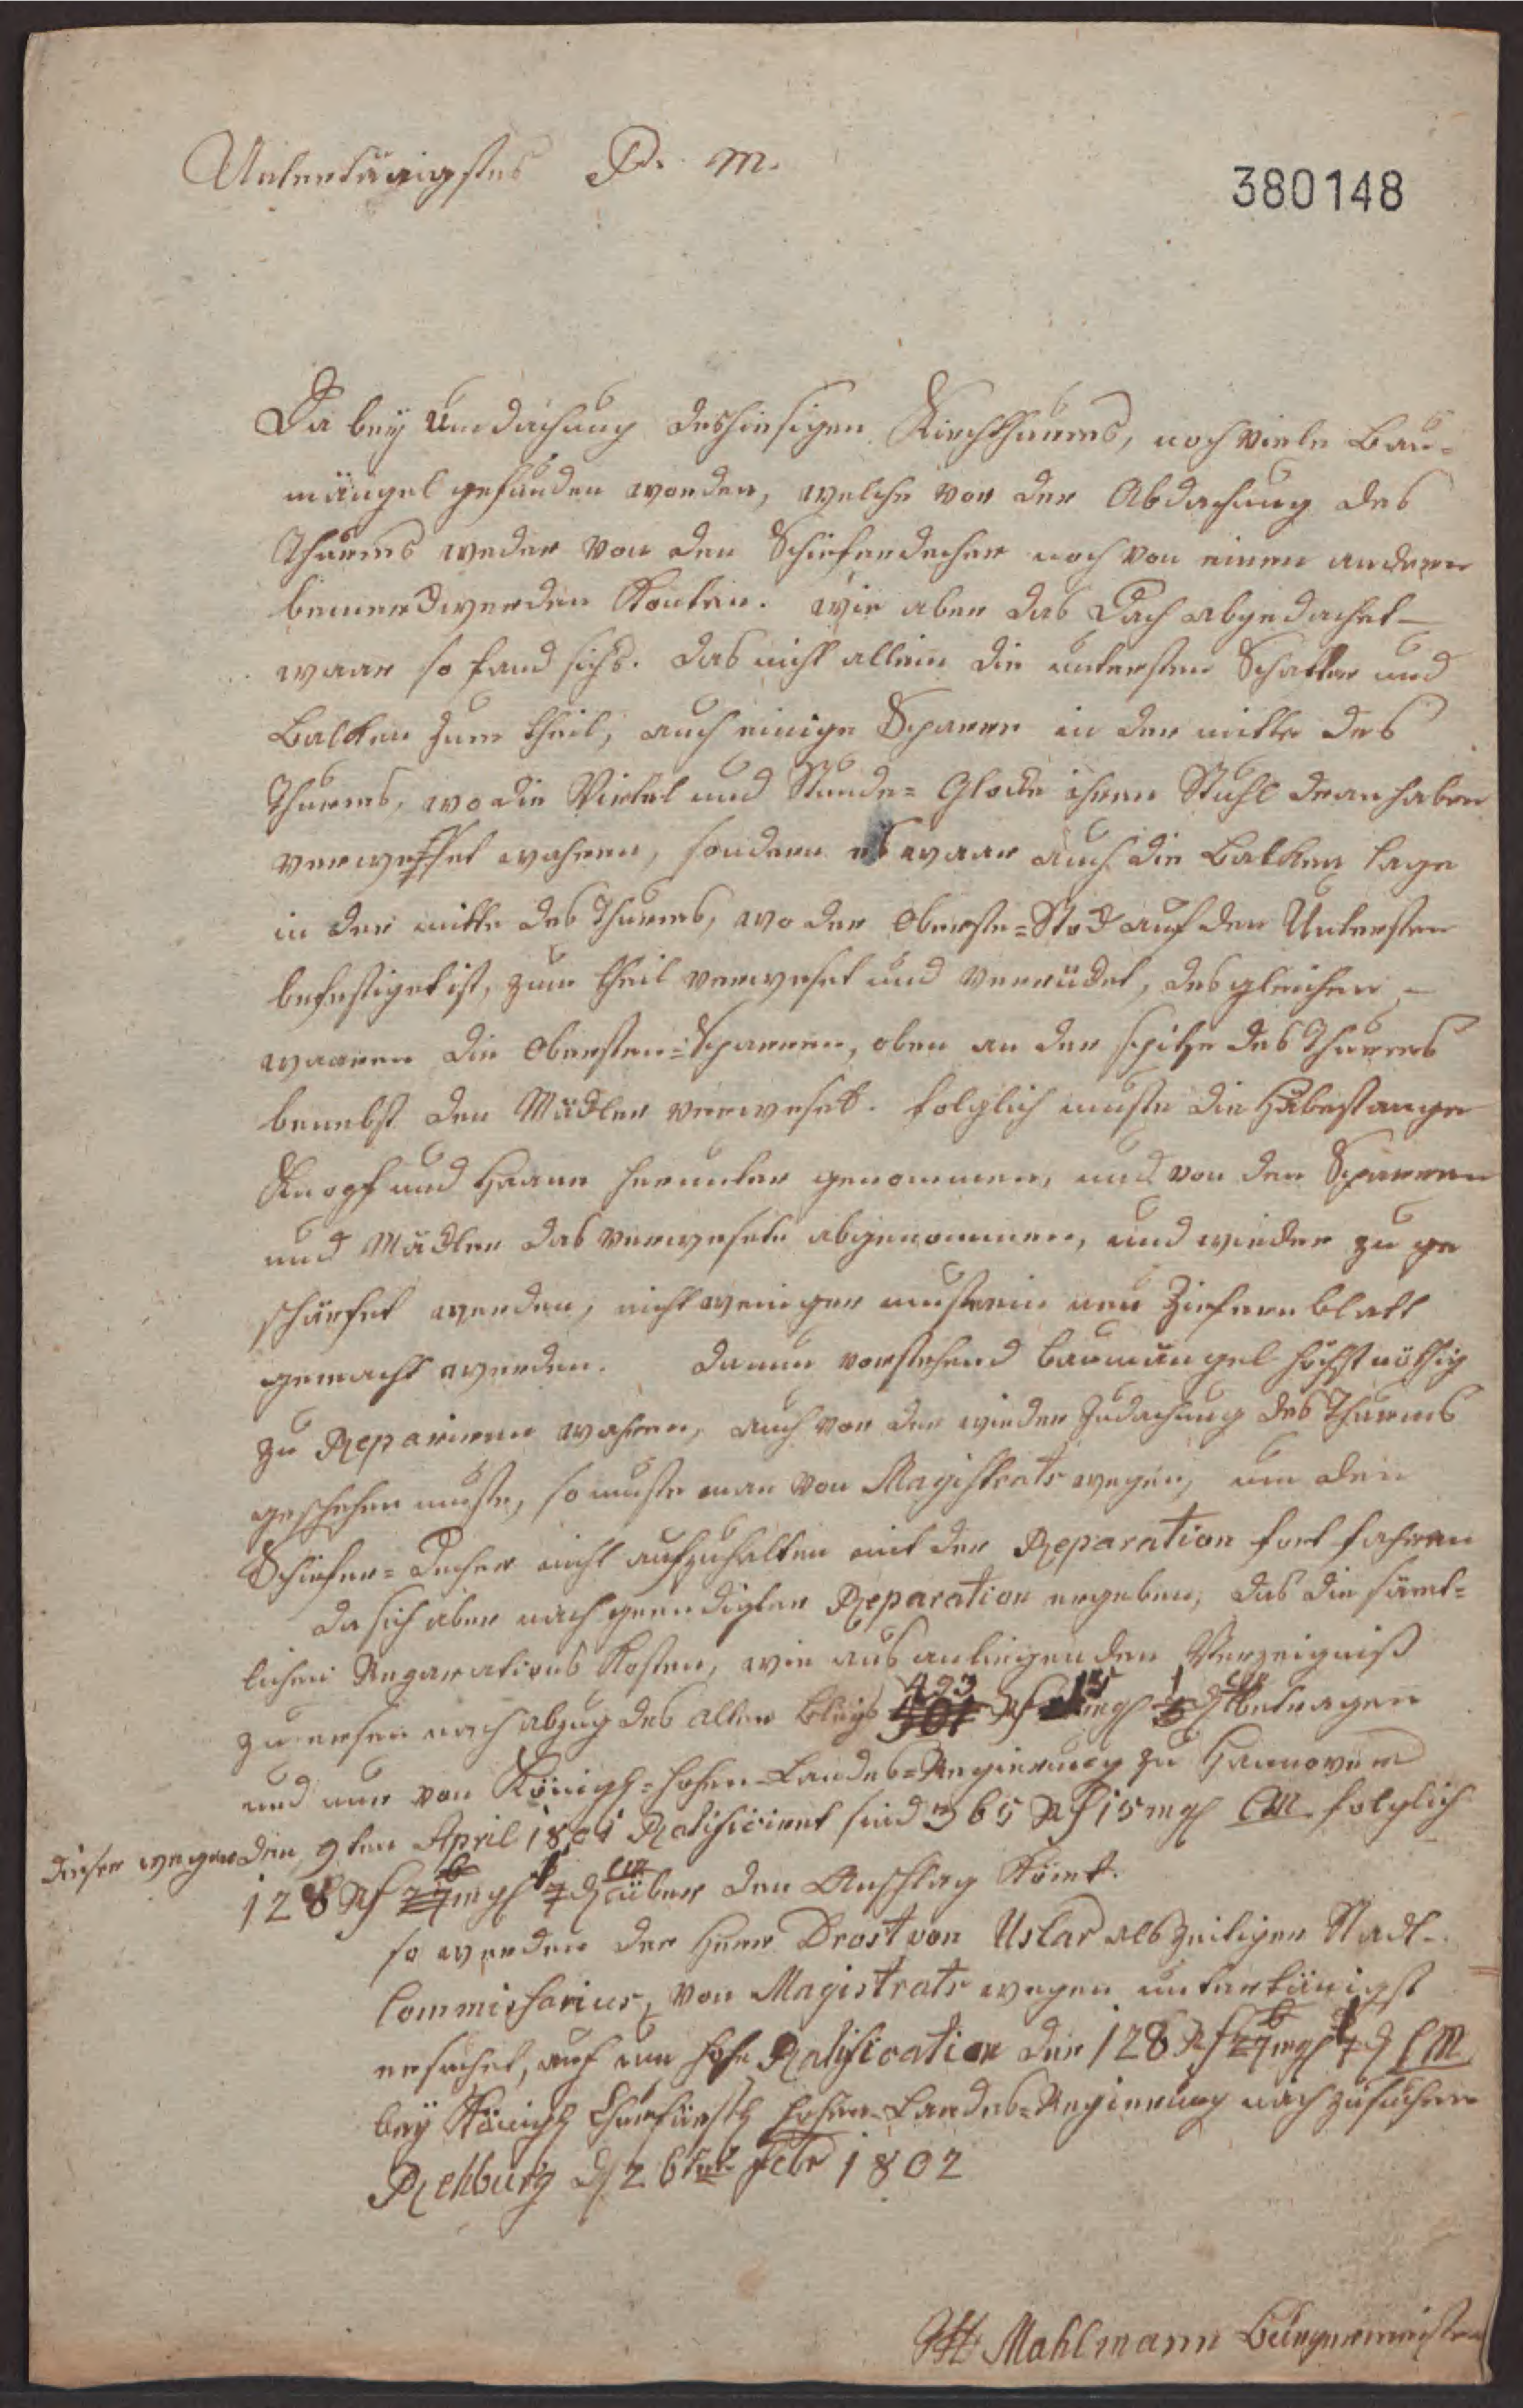 Untertänigstes P. M.
380148
Da bey Umdachung deshiesigen Kirchthurms, noch viele Bau-
mängel gefunden worden, welche vor der Abdachung des
Thurms weder von den Schieferdecker noch von einen andern
bemerckwerden konten. wie aber das Dach abgedachet
waar so fand sichs. das nicht allein die untersten und
Balcken zum theil, auch einige Sparrn in der mitte des
Thurms, wo die Virtel und Stunde= Glocke ihren Stuhl dranhaben
verweset wahren, sondern es waar auch die Balken lage
in der mitte des Thurms, wo der Oberste=Stock auf den Untersten
befestiget ist, zum theil verweset und verrücket, desgleichen
waaren die Obersten=Sparren, oben an der spitze des Thurms
benebst den Mäckler verweset. folglich muste die
Knopf und Haann herunter genommen, und von den Sparren
und Mäckler das verwesete abgenommen, und wieder zu ge
schärfet werden, nicht weniger muste ein neu Ziefernblatt
gemacht werden. Danun vorstehend Baumängel höchst nöthig
zu Reparieren wahren, auch vor der wieder Zudachung des Thurms
geschehen muste, so muste man von Magistrats wegen, um den
Schiefer=Decker nicht aufzuhalten mit der Reparation fort fahren
da sich aber nach geendigter Reparation ergeben, das die sämt=
lichen Reparations Kosten, wie aus anliegenden Verzeigniß
zu ersehen nach abzug des alten Bleys 493 rf 15 mgl 1 d betragen
und nur von Königl=hohen=Landes=Regierung zu Hannover
den 9ten April 1801 Ratificiret sind 365 rf 15 mgl CM folglich
dieser wegen
128 rf mgl 1 d CM über den Anschlag kömt.
so werden der Herr Drost von Uslar als zeitiger Stadt-
Commissarius, von Magistrats wegen untertänigst
ersuchet, auf um hohe Ratification der 128 rf mgl 1 d CM
bey Königl Churfürstl hohen=Landes=Regierung nach zu suchen
Rehburg d 26ten Febr 1802
Mahlmann Bürgermeister